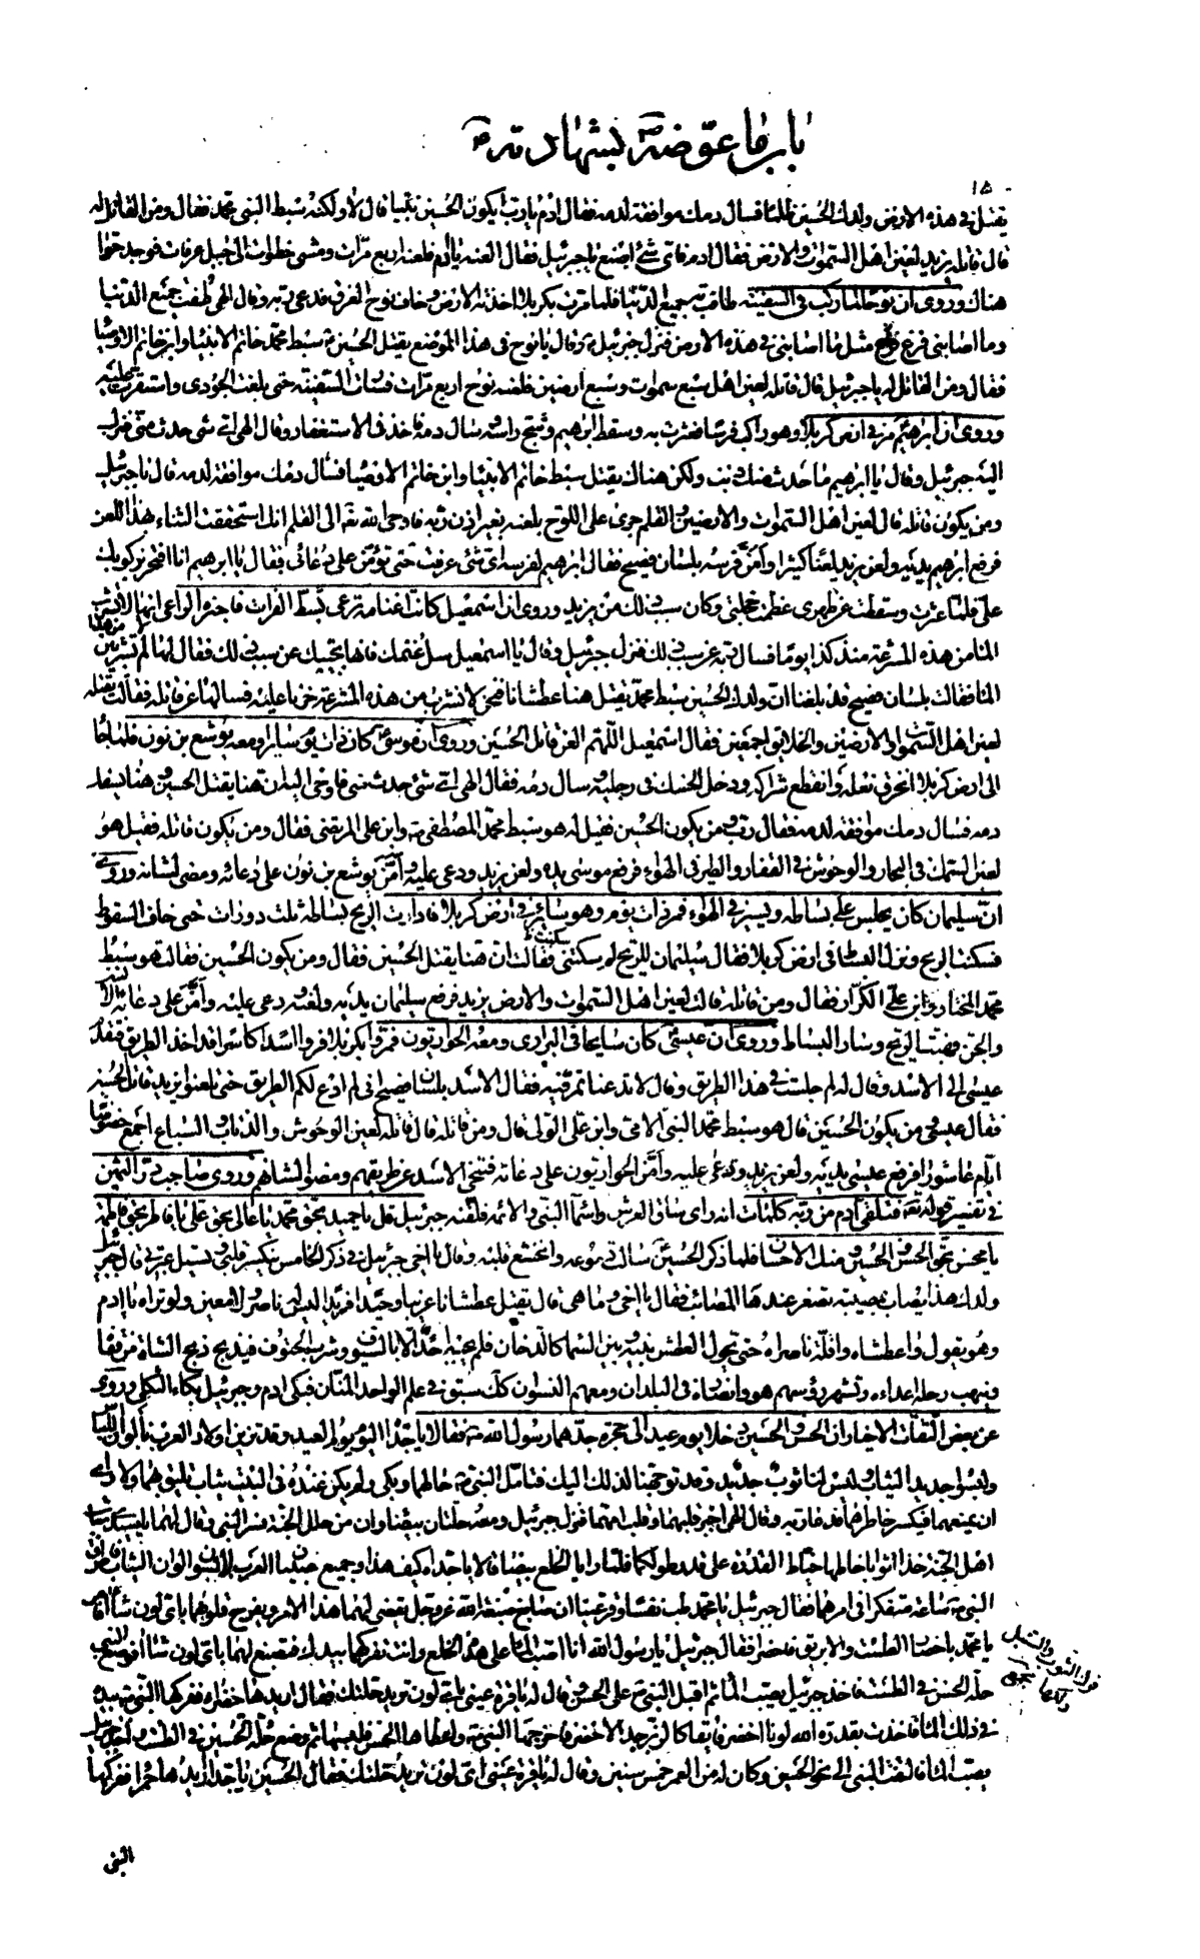 باب ما عوّضه ص بشهادته ع
١٥
يقتل في هذه الارض ولدك الحسين ظلما فسال دمك موافقة لدمه فقال ادم يا رب ايكون الحسين نبيا قال لا ولكنه سبط النبي محمد فقال ومن القاتل له
قال قاتله يزيد لعين اهل السموات والارض فقال ادم فاى شئ اصنع يا جبرئيل فقال العنه يا ادم فلعنه اربع مرات ومشى خطوات الى جبل عرفات فوجد حوا
هناك وروى ان نوحا لما ركب في السفينة طافت به جميع الدنيا فلما مرت بكربلا اخذته الارض وخاف نوح الغرق فدعى ربه وقال الهى طفت جميع الدنيا
وما اصابنى فزع مثل ما اصابنى في هذه الارض فنزل جبرئيل ع وقال يا نوح في هذا الموضع يقتل الحسين ع سبط محمد خاتم الانبياء وابن خاتم الاوصيا
فقال ومن القاتل له يا جبرئيل قال قاتله لعين اهل سبع سموات وسبع ارضين فلعنه نوح اربع مرات فسارت السفينة حتى بلغت الجودى واستقرت عليه
وروى ان ابرهيم مر في ارض كربلا وهو راكب فرسا فعثرت به وسقط ابرهيم وشج راسه وسال دمه فاخذ في الاستغفار وقال الهى اى شئ حدث منى فنزل
اليه جبرئيل وقال يا ابرهيم ما حدث منك ذنب ولكن هناك يقتل سبط خاتم الانبياء وابن خاتم الاوصيا فسال دمك موافقة لدمه قال يا جبرئيل
ومن يكون قاتله قال لعين اهل السموات والارضين والقلم جرى على اللوح بلعنه بغير اذن ربه فاوحى الله تعه الى القلم انك استحققت الثناء بهذا اللعن
فرفع ابرهيم يديه ولعن يزيد لعنا كثيرا وامن فرسه بلسان فصيح فقال ابرهيم لفرسه اى شئ عرفت حتى تؤمن على دعائى فقال يا ابرهيم انا افتخر بركوبك
على فلما عثرت وسقطت عن ظهرى عظمت خجلتى وكان سبب ذلك من يزيد وروى ان اسمعيل كانت اغنامه ترعى بشط الفرات فاخبره الراعى انها لا تشرب
الماء من هذه المشرعة منذ كذا يوما فسال ربه عن سبب ذلك فنزل جبرئيل وقال يا اسمعيل سل غنمك فانها تجيبك عن سبب ذلك فقال لها لم لا تشربين من هذا
الماء فقالت بلسان فصيح قد بلغنا ان ولدك الحسين سبط محمد يقتل هنا عطشانا فنحن لا نشرب من هذه المشرعة حزنا عليه فسالها عن قاتله فقالت يقتله
لعين اهل السموات والارضين والخلايق اجمعين فقال اسمعيل اللهم العن قاتل الحسين وروى ان موسى كان ذات يوم سايرا ومعه يوشع بن نون فلما جا
الى ارض كربلا انخرق نعله وانقطع شراكه ودخل الحسك في رجليه وسال دمه فقال الهى اى شئ حدث منى فاوحى اليه ان هنا يقتل الحسين وهنا يسفك
دمه فسال دمك موافقة لدمه فقال رب ومن يكون الحسين فقيل له هو سبط محمد المصطفى وابن على المرتضى فقال ومن يكون قاتله فقيل هو
لعين السمك في البحار والوحوش في القفار والطير في الهواء فرفع موسى يديه ولعن يزيد ودعى عليه وامن يوشع بن نون على دعائه ومضى لشانه وروى
ان سليمان كان يجلس على بساطه ويسير في الهواء فمر ذات يوم وهو ساير في ارض كربلا فادارت الريح بساطه ثلث دورات حتى خاف السقوط
فسكنت الريح ونزل البساط في ارض كربلا فقال سليمان للريح لم سكنتى فقالت ان هنا يقتل الحسين فقال ومن يكون الحسين فقالت هو سبط
محمد المختار وابن على الكرار فقال ومن قاتله قالت لعين اهل السموات والارض يزيد فرفع سليمان يديه ولعنه ودعى عليه وامن على دعائه الانس
والجن فهبت الريح وسار البساط وروى ان عيسى كان سايحا في البرارى ومعه الحواريون فمروا بكربلا فراوا اسدا كاسرا قد اخذ الطريق فتقدم
عيسى الى الاسد وقال له لم جلست في هذا الطريق وقال لا تدعنا نمر فيه فقال الاسد بلسان فصيح انى لم ادع لكم الطريق حتى تلعنوا يزيد قاتل الحسين
فقال عيسى ومن يكون الحسين قال هو سبط محمد النبي الامى وابن على الولى قال ومن قاتله قال قاتله لعين الوحوش والذئاب والسباع اجمع خصوصا
ايام عاشورا فرفع عيسى يديه ولعن يزيد ودعى عليه وامن الحواريون على دعائه فتنحى الاسد عن طريقهم ومضوا لشانهم وروى صاحب الدر الثمين
في تفسير قوله تعه فتلقى ادم من ربه كلمات انه راى ساق العرش واسماء النبي والائمه فلقنه جبرئيل قل يا حميد بحق محمد يا عالى بحق على يا فاطر بحق فاطمه
يا محسن بحق الحسن والحسين ومنك الاحسان فلما ذكر الحسين سالت دموعه وانخشع قلبه وقال يا اخى جبرئيل في ذكر الخامس ينكسر قلبى وتسيل عبرتى قال جبرئيل
ولدك هذا يصاب بمصيبة تصغر عندها المصائب فقال يا اخى وما هى قال يقتل عطشانا غريبا وحيدا فريدا ليس له ناصر ولا معين ولو تراه يا ادم
وهو يقول وا عطشاه وا قلة ناصراه حتى يحول العطش بينه وبين السماء كالدخان فلم يجبه احد الا بالسيوف وشرب الحتوف فيذبح ذبح الشاة من قفا
وينهب رحله اعداءه وتشهر رؤسهم هو وانصاه في البلدان ومعهم النسوان كذلك سبق في علم الواحد المنان فبكى ادم وجبرئيل بكاء الثكلى وروى
عن بعض الثقات الاخيار ان الحسن والحسين دخلا يوم عيد الى حجرة جدهما رسول الله ص فقالا يا جداه اليوم يوم العيد وقد تزين اولاد العرب بالوان اللباس
ولبسوا جديد الثياب وليس لنا ثوب جديد وقد توجهنا لذلك اليك فتامل النبي ص حالهما وبكى ولم يكن عنده في البيت ثياب تليق بهما ولا راى
ان يمنعهما فيكسر خاطرهما فدعا ربه وقال الهى اجبر قلبهما وقلب امهما فنزل جبرئيل ومعه حلتان بيضاوان من حلل الجنة فسر النبي ص وقال لهما يا سيدى شباب
اهل الجنة خذا اثوابا خاطها خياط القدرة على قدر طولكما فلما رايا الخلع بيضا قالا يا جداه كيف هذا وجميع صبيان العرب لابسون الوان الثياب فاطرق
النبي ص ساعة متفكرا في امرهما فقال جبرئيل يا محمد طب نفسا وقر عينا ان صابغ صبغة الله عز وجل يقضى لهما هذا الامر ويفرح قلوبهما باى لون شاءا فامر
يا محمد باحضار الطشت والابريق فحضرا فقال جبرئيل يا رسول الله انا اصب الماء على هذه الخلع وانت تفركهما بيدك فتصبغ لهما باى لون شاءا فوضع النبي
حلة الحسن في الطشت فاخذ جبرئيل يصب الماء ثم اقبل النبي ص على الحسن وقال له يا قرة عينى باى لون تريد حلتك فقال اريدها خضراء ففركها النبي ص بيده
في ذلك الماء فاخذت بقدرة الله لونا اخضر فايقا كالزبرجد الاخضر فاخرجها النبي ص واعطاها الحسن فلبسها ثم وضع حلة الحسين في الطشت واخذ جبرئيل
يصب الماء فالتفت النبي الى نحو الحسين وكان له من العمر خمس سنين وقال له يا قرة عينى اى لون تريد حلتك فقال الحسين يا جد اريدها حمراء ففركها
فرك الثوب والسنبل
دلكهما
النبي